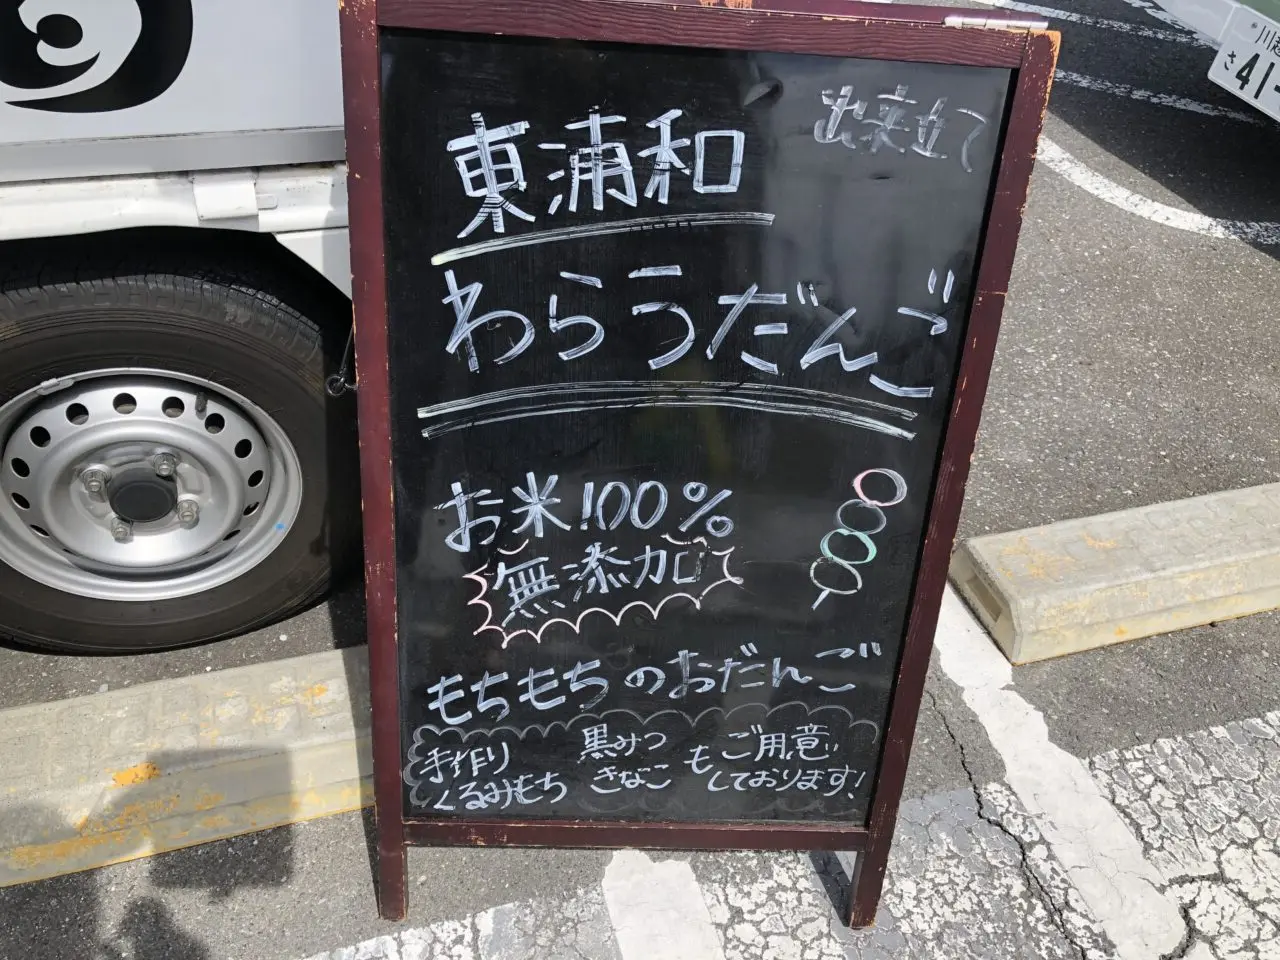 出来立て
東浦和
わらうだんご
お米100%
無添加
もちもちのおだんご
手作り
くるみもち
黒みつ
きなこ
もご用意
しております!
さ 41-